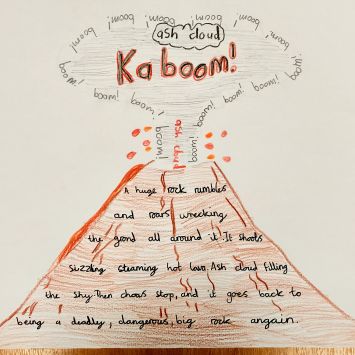 boom! boom! boom! boom! boom!
ash cloud
Ka boom!
boom! boom! boom! boom! boom! boom! boom!
boom! ash cloud boom!
A huge rock rumbles
and roars wrecking
the grond all around it. It shoots
sizzling steaming hot lava. Ash cloud filling
the sky. Then chaos stop, and it goes back to
being a deadly, dangerous, big rock angain.